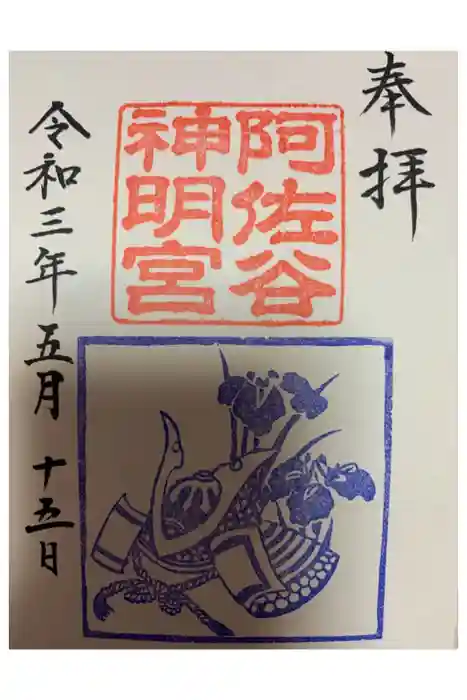 奉拝
阿佐谷
神明宮
令和三年五月十五日